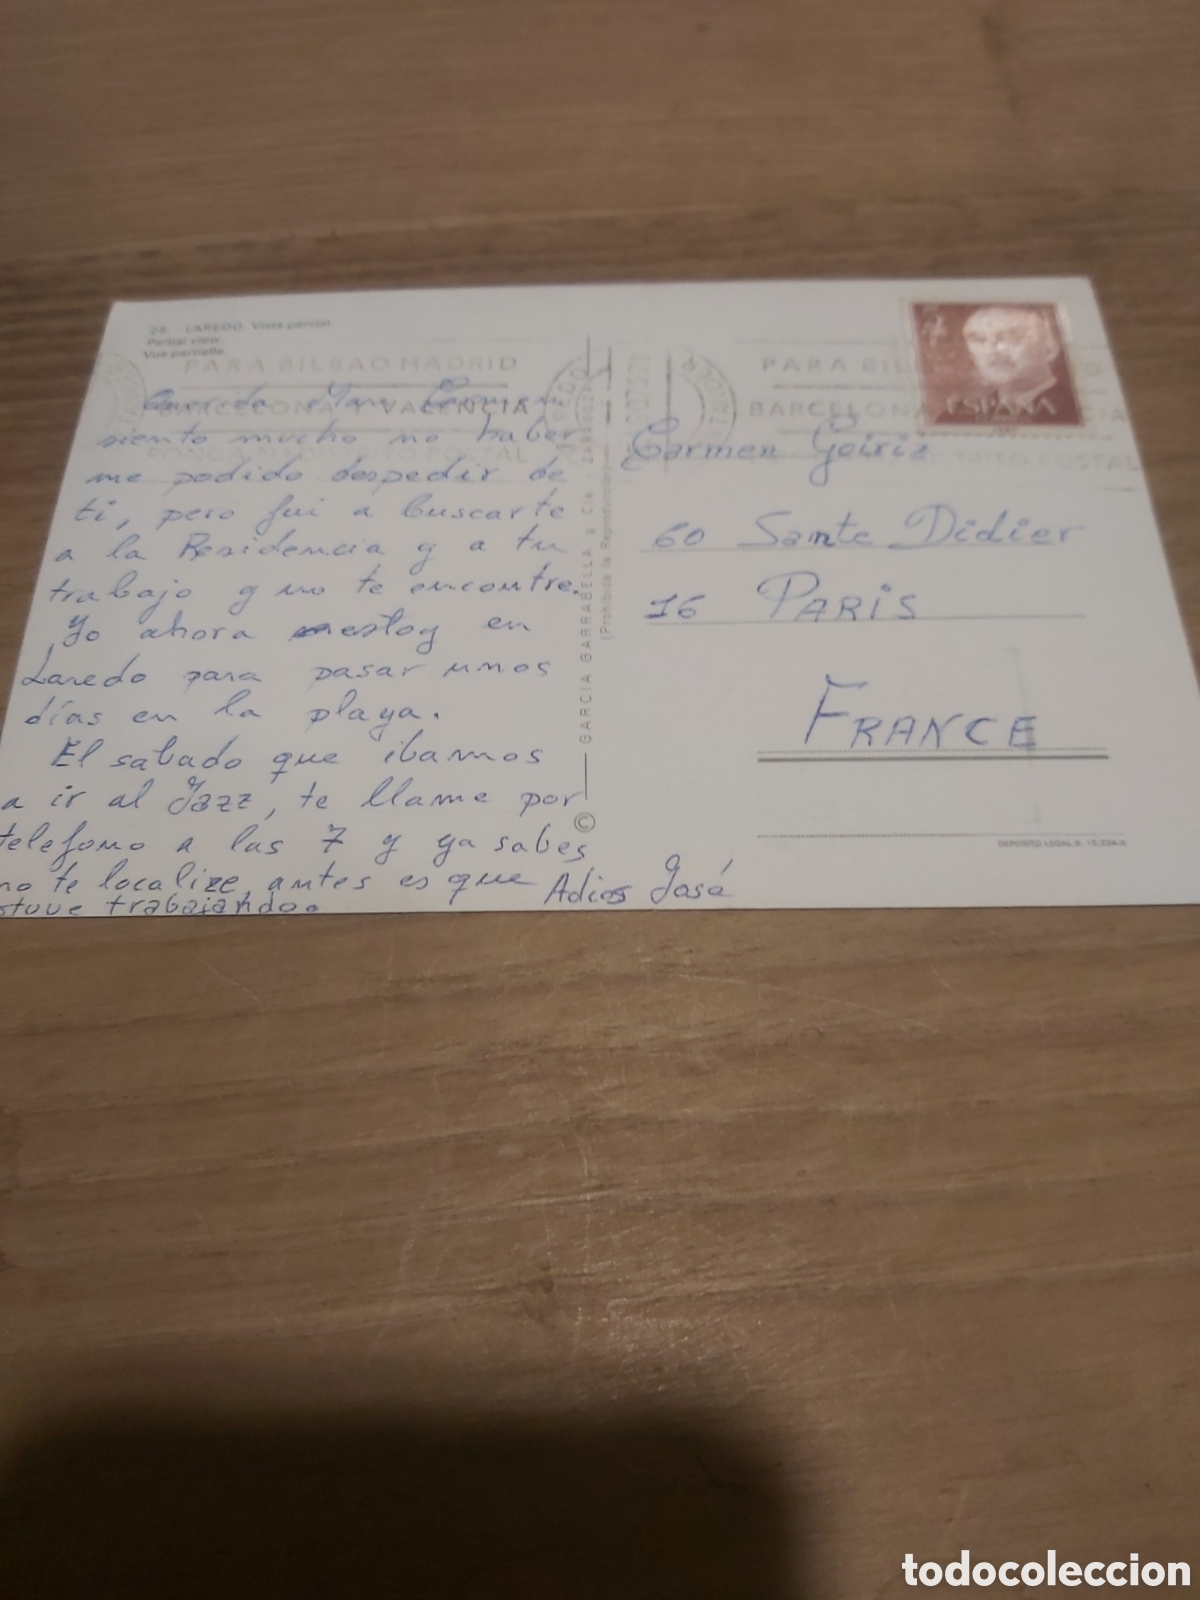 28. - LAREDO. Vista parcial.
Partial view.
Vue partielle.
PARA BILBAO MADRID
BARCELONA Y VALENCIA
PONGA DISTRITO POSTAL
Querida Mari Carmen
siento mucho no haber
me podido despedir de
ti, pero fui a buscarte
a la Residencia y a tu
trabajo y no te encontre.
Yo ahora estoy en
Laredo para pasar unos
días en la playa.
El sabado que ibamos
a ir al Jazz, te llame por
telefono a las 7 y ya sabes
no te localize, antes es que
stuve trabajando.
Adios José
© GARCIA GARRABELLA y Cia. - ZARAGOZA
(Prohibida la Reproducción)
LAREDO
PARA BIL
BARCELONA
CIA
TRITO POSTAL
ESPAÑA
Carmen Goiriz
60 Sante Didier
16 PARIS
FRANCE
DEPOSITO LEGAL B. 15.224-X
todocoleccion